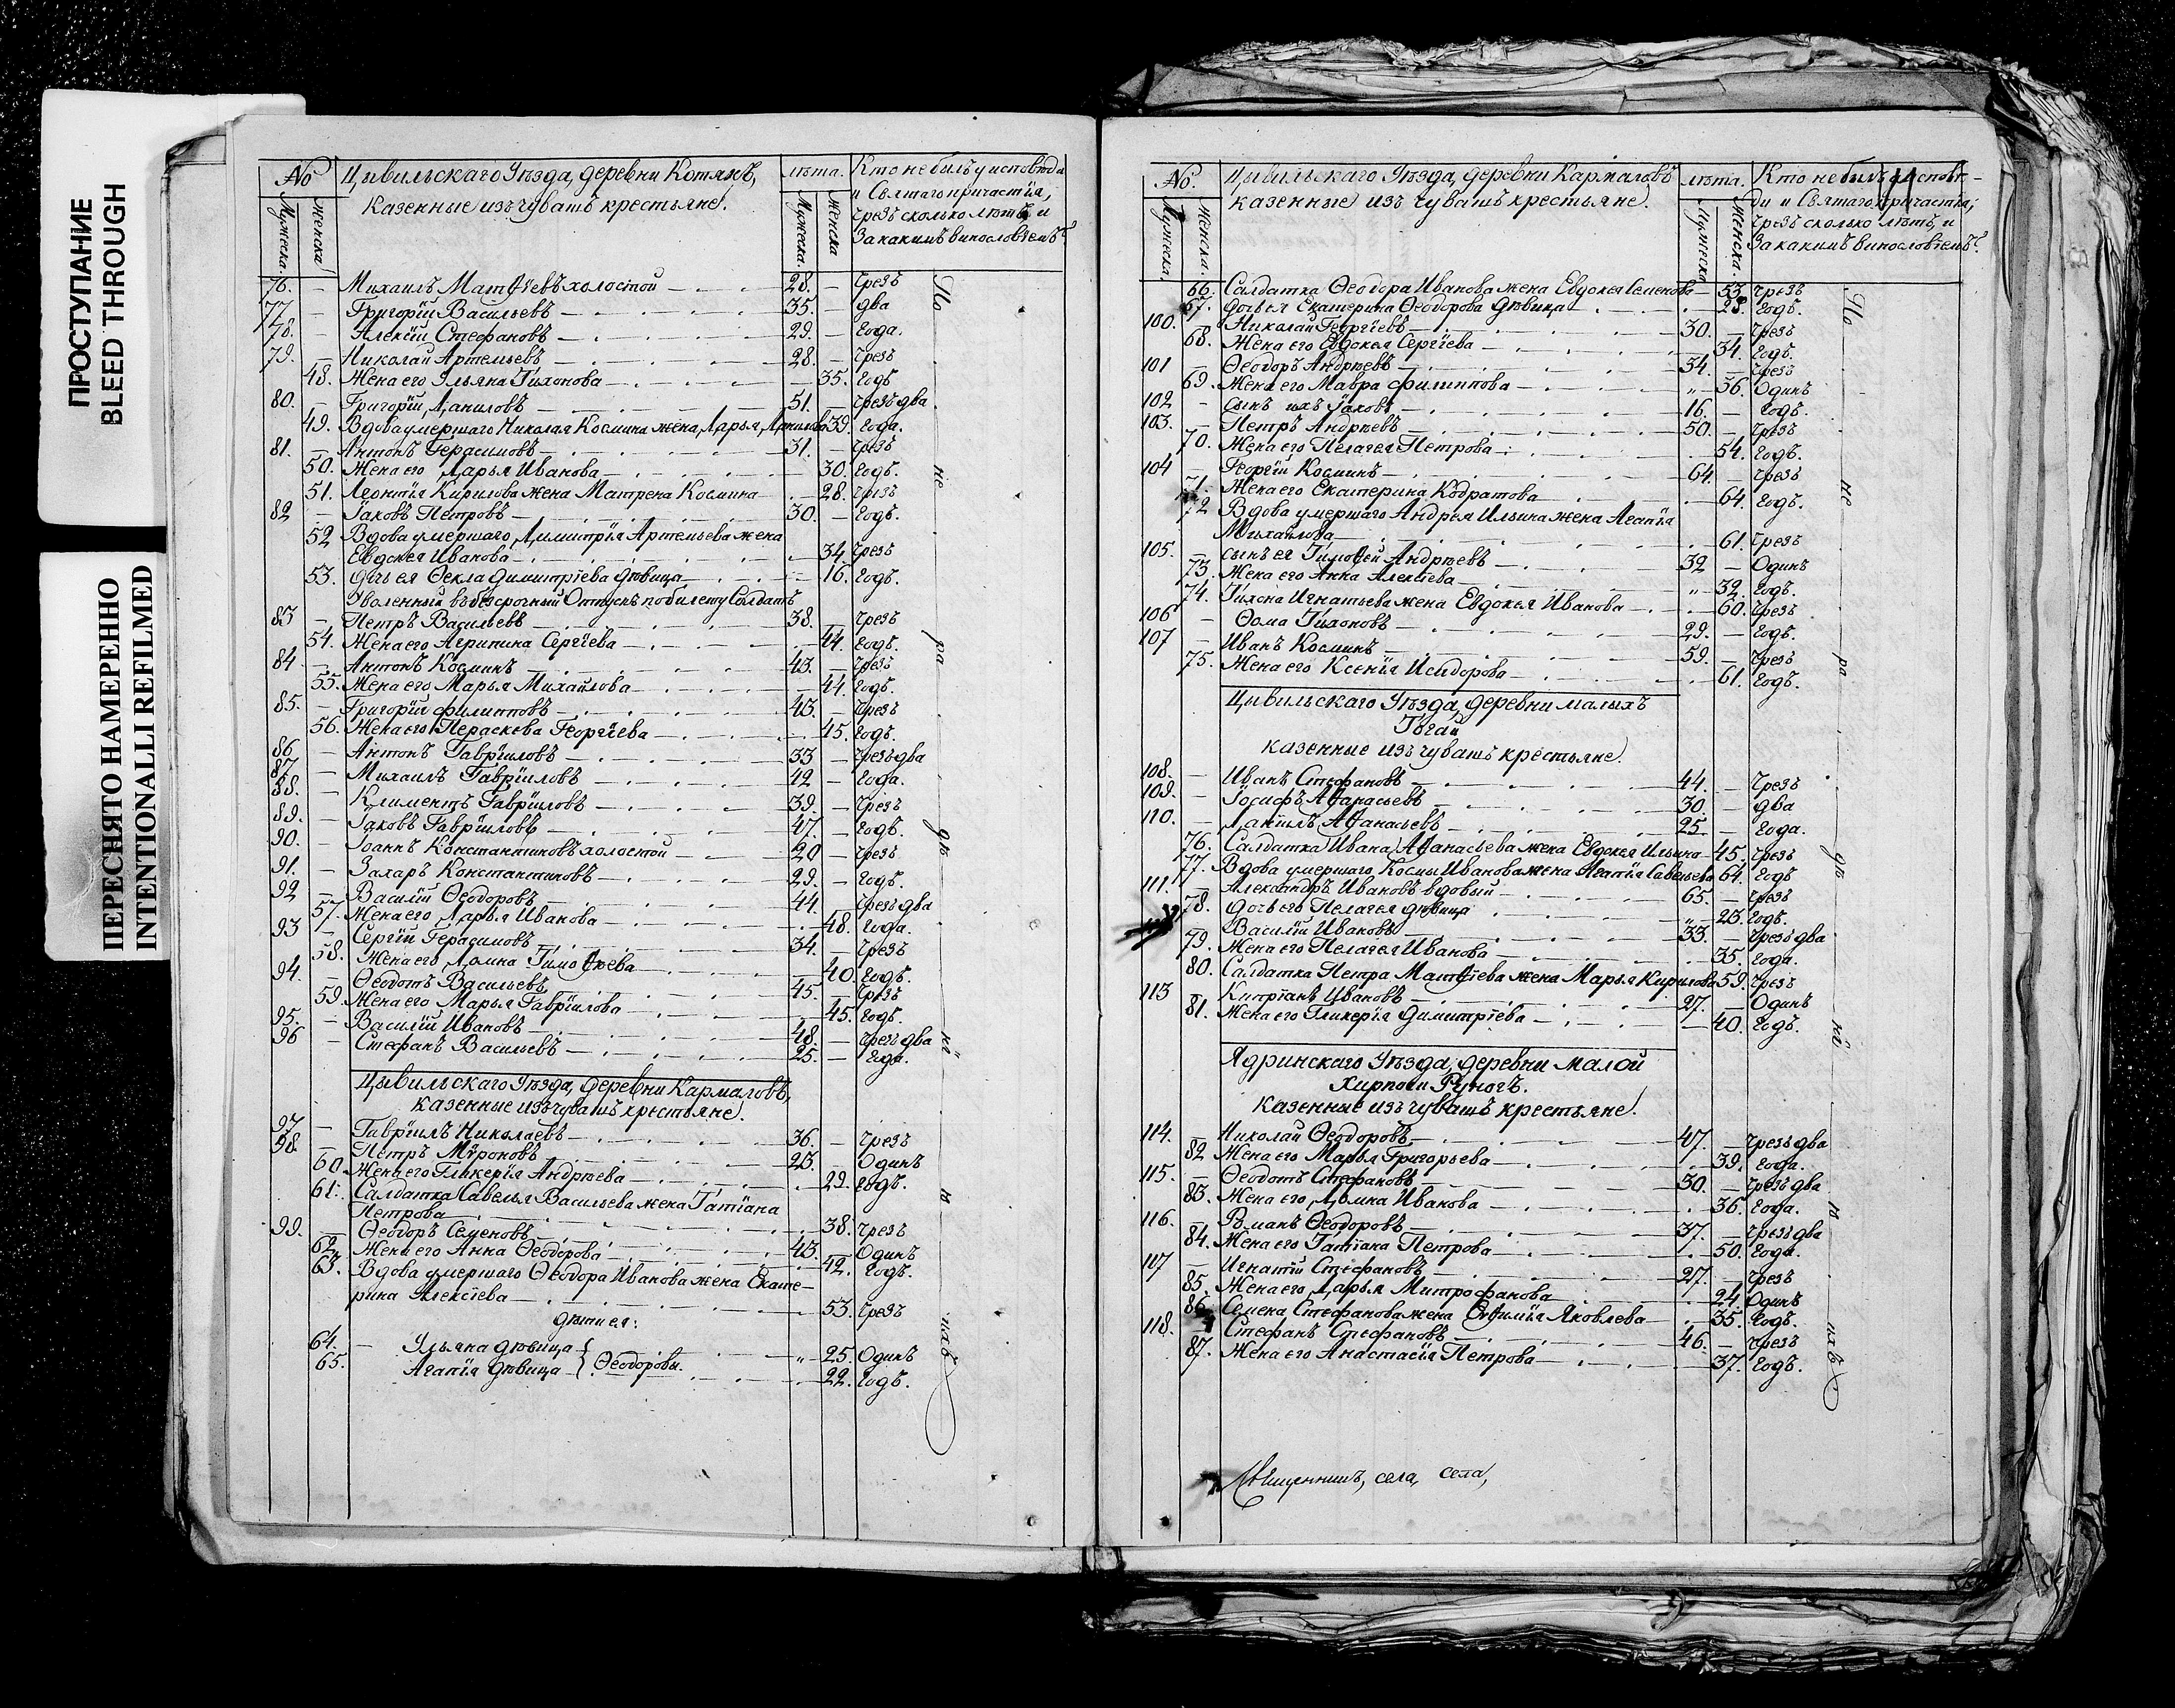 ПРОСТУПАНИЕ
BLEED THROUGH
ПЕРЕСНЯТО НАМЕРЕННО
INTENTIONALLI REFILMED
№ Цывильскаго Уѣзда, деревни Котякъ, лѣта. Кто не былъ у исповѣди
казенные изъ чувашъ крестьяне. и Святаго причастія,
Мужеска. Женска Мужеска. Женска чрезъ сколько лѣтъ, и
за какимъ винословіемъ?
76. — Михаилъ Матѳѣевъ холостой 28. — чрезъ
77 — Григорій Васильевъ 35. — два
78. — Алексѣй Стефановъ 29. — года.
79. — Николай Артемьевъ 28. — чрезъ
48. Жена его Ульяна Тихонова — 35. годъ
80. — Григорій Даниловъ 51. — чрезъ два
49. Вдова умершаго Николая Космина жена Дарья Данилова 39. года.
81. — Антонъ Герасимовъ 31. — чрезъ
50. Жена его Дарья Иванова — 30. годъ.
51. Леонтія Кирилова жена Матрена Космина — 28. чрезъ
82 — Іаковъ Петровъ 30. — годъ.
52 Вдова умершаго Димитрія Артемьева жена
Евдокея Иванова — 34 чрезъ
53. Дочь ея Ѳекла Димитріева дѣвица — 16. годъ.
Уволенный въ безсрочный Отпускъ по билету Солдатъ
83 — Петръ Васильевъ 38. чрезъ
54. Жена его Агрипина Сергѣева — 44. годъ.
84 — Антонъ Косминъ 43. — чрезъ
55. Жена его Марья Михайлова — 44. годъ.
85. — Григорій Филипповъ 43. — чрезъ
56. Жена его Пераскева Георгіева — 45. годъ.
86 — Антонъ Гавріиловъ 33 — чрезъ два
87 — Михаилъ Гавріиловъ 42 — года.
88. — Климентъ Гавріиловъ 39. — чрезъ
89. — Іаковъ Гавріиловъ 47. — годъ.
90. — Іоаннъ Константиновъ холостой 20 — чрезъ
91. — Захаръ Константиновъ 29. — годъ.
92 — Василій Ѳеодоровъ 44. — чрезъ два
57. Жена его Дарья Иванова — 48. года.
93 — Сергій Герасимовъ 34. — чрезъ
58. Жена его Домна Тимоѳѣева — 40 годъ.
94. — Ѳеодотъ Васильевъ 45. — чрезъ
59. Жена его Марья Гавріилова — 45. годъ.
95. — Василій Ивановъ 48. — чрезъ два
96 — Стефанъ Васильевъ 25. — года.
Цывильскаго Уѣзда, деревни Кармаловъ,
казенные изъ чувашъ крестьяне.
97 — Гавріилъ Николаевъ 36. — чрезъ
98. — Петръ Мѵроновъ 23. — Одинъ
60. Жена его Гликерія Андрѣева — 29. годъ.
61. Салдатка Савелья Васильева жена Татіана
Петрова — 38. чрезъ
99. — Ѳеодоръ Семеновъ 43. — Одинъ
62. Жена его Анна Ѳеодорова — 42. годъ.
63. Вдова умершаго Ѳеодора Иванова жена Екате-
рина Алексіева — 53. чрезъ
дѣти ея:
64. — Ульяна дѣвица „ 25. Одинъ
65. Агапія дѣвица } Ѳеодоровы. 22. годъ.
По не ра дѣ нї ю ихъ
№. Цывильскаго Уѣзда, деревни Кармаловъ лѣта. Кто не былъ у исповѣ-
казенные изъ чувашъ крестьяне. ди и Святаго причастія,
Мужеска. Женска. Мужеска Женска. чрезъ сколько лѣтъ, и
за какимъ винословіемъ?
66. Салдатка Ѳеодора Иванова жена Евдокея Семенова — 53. чрезъ
67. Дочь ея Екатерина Ѳеодорова дѣвица 23. годъ.
100. — Николай Георгіевъ 30. — чрезъ
68. Жена его Евдокея Сергіева 34. годъ.
101 — Ѳеодоръ Андрѣевъ 34. — чрезъ
69. Жена его Мавра Филиппова „ 36. Одинъ
102 — сынъ ихъ Іаковъ 16. — годъ.
103. — Петръ Андрѣевъ 50. — чрезъ
70. Жена его Пелагея Петрова 54. годъ.
104 — Георгій Косминъ 64. — чрезъ
71. Жена его Екатерина Кодратова — 64. годъ.
72 Вдова умершаго Андрея Ильина жена Агапія
Михайлова — 61. чрезъ
105. — сынъ ея Тимоѳей Андрѣевъ 32 — Одинъ
73. Жена его Анна Алексіева „ 32. годъ.
74. Тихона Игнатьева жена Евдокея Иванова — 60. чрезъ
106 — Ѳома Тихоновъ 29. — годъ.
107 — Иванъ Косминъ 59. — чрезъ
75. Жена его Ксенія Исидорова 61. годъ.
Цывильскаго Уѣзда, деревни малыхъ
Тугай
казенные изъ чувашъ крестьяне.
108. — Иванъ Стефановъ 44. — чрезъ
109. — Іосифъ Аѳанасьевъ 30. — два
110. — Даніилъ Аѳанасьевъ 25 — года.
76. Салдатка Ивана Аѳанасьева жена Евдокея Ильина — 45. чрезъ
77. Вдова умершаго Космы Иванова жена Агапія Савельева 64. годъ
111. — Александръ Ивановъ вдовый 65. — чрезъ
78. Дочь его Пелагея дѣвица „ 23. годъ.
Василій Ивановъ 33. — чрезъ два
79. Жена его Пелагея Иванова 35. года.
80. Салдатка Петра Матѳіева жена Марья Кирилова 59. чрезъ
113 Кипріанъ Ивановъ 27. — Одинъ
81. Жена его Гликерія Димитріева — 40. годъ.
Ядринскаго Уѣзда, деревни малой
казенные изъ чувашъ крестьяне.
114. Николай Ѳеодоровъ 47. — чрезъ два
82 Жена его Марья Григорьева — 39. года.
115. — Ѳеодотъ Стефановъ 30. — чрезъ два
83. Жена его Домна Иванова 36. года.
116. — Романъ Ѳеодоровъ 37. — чрезъ два
84. Жена его Татіана Петрова — 50. года.
117 — Игнатій Стефановъ 27. — чрезъ
85. Жена его Дарья Митрофанова 24. Одинъ
86. Семена Стефанова жена Евѳимія Яковлева — 35. годъ.
118. Стефанъ Стефановъ 46. — чрезъ
87. Жена его Анастасія Петрова — 37. годъ.
По не ра дѣ нї ю ихъ
Священникъ, села, села,